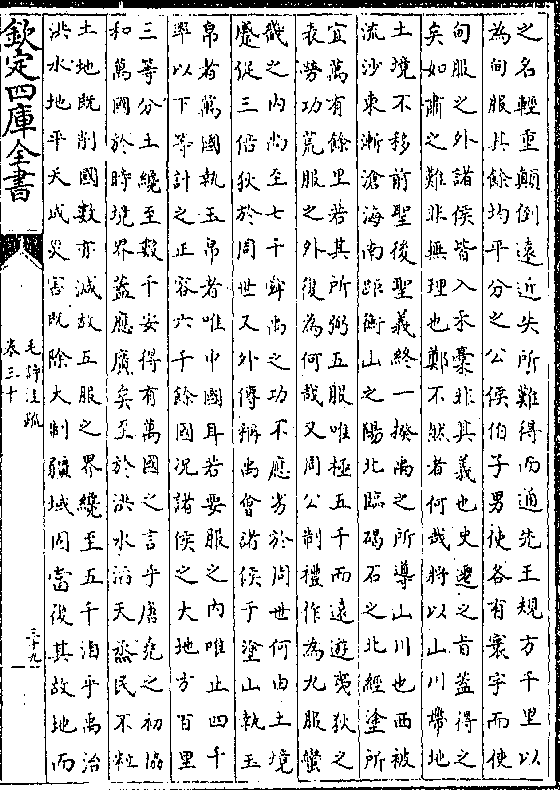 之名輕重顛倒遠近失所難得而通先王規方千里以
為甸服其餘均平分之公侯伯子男使各有寰宇而使
甸服之外諸侯皆入禾藁非其義也史遷之旨蓋得之
矣如肅之難非無理也鄭不然者何哉將以山川帶地
土境不移前聖後聖義終一揆禹之所導山川也西被
流沙東漸滄海南距衡山之陽北臨碣石之北經塗所
宜萬有餘里若其所弼五服唯極五千而遠遊夷狄之
表勞功荒服之外復為何哉又周公制禮作為九服蠻
畿之內尚至七千縡禹之功不應劣於周世何由土境
蹙促三倍狄於周世又外傳稱禹會諸侯于塗山執玉
帛者萬國執玉帛者唯中國耳若要服之內唯止四千
率以下等計之正容六千餘國況諸侯之大地方百里
三等分土纔至數千安得有萬國之言乎唐堯之初協
和萬國於時境界蓋應廣矣至於洪水滔天烝民不粒
土地既削國數亦減故五服之界纔至五千洎乎禹治
洪水地平天成災害既除大制疆域固當復其故地而
欽定四庫全書
毛詩注疏
卷三十
三十九